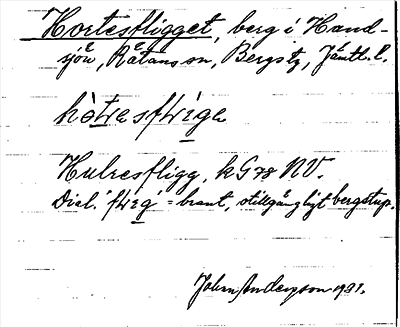 Hortesfligget, berg i Hand-
sjön, Rätans sn, Bergs tg, Jämtl. l.
hòtresfłiga
Hulresfligg, k G 78 NV.
Dial. 'flig' = brant, otillgängligt bergstup.
John Anderson 1931.